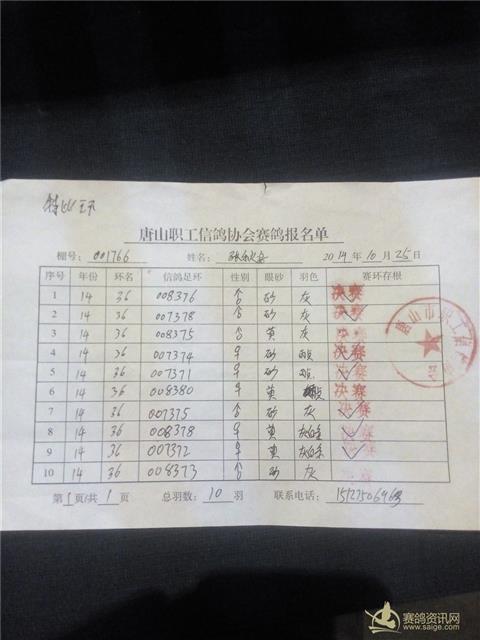 特比环
唐山职工信鸽协会赛鸽报名单
棚号: 001766 姓名: 2014年10月25日
序号 年份 环名 信鸽足环 性别 眼砂 羽色 赛环存根
1 14 36 008376 ♂ 砂 灰 决赛
2 14 36 007378 ♂ 砂 灰 决赛
3 14 36 008375 ♂ 黄 灰 决赛
4 14 36 007374 ♀ 砂 决赛
5 14 36 007371 ♀ 砂 决赛
6 14 36 008380 ♀ 黄 决赛
7 14 36 007375 ♂ 砂 灰 决赛
8 14 36 008378 ♀ 黄 灰白条 决赛
9 14 36 007372 ♀ 黄 灰白条 决赛
10 14 36 008373 ♂ 砂 灰
唐山市职工信鸽
第1页/共1页 总羽数: 10 羽 联系电话:
赛鸽资讯网
www.saige.com